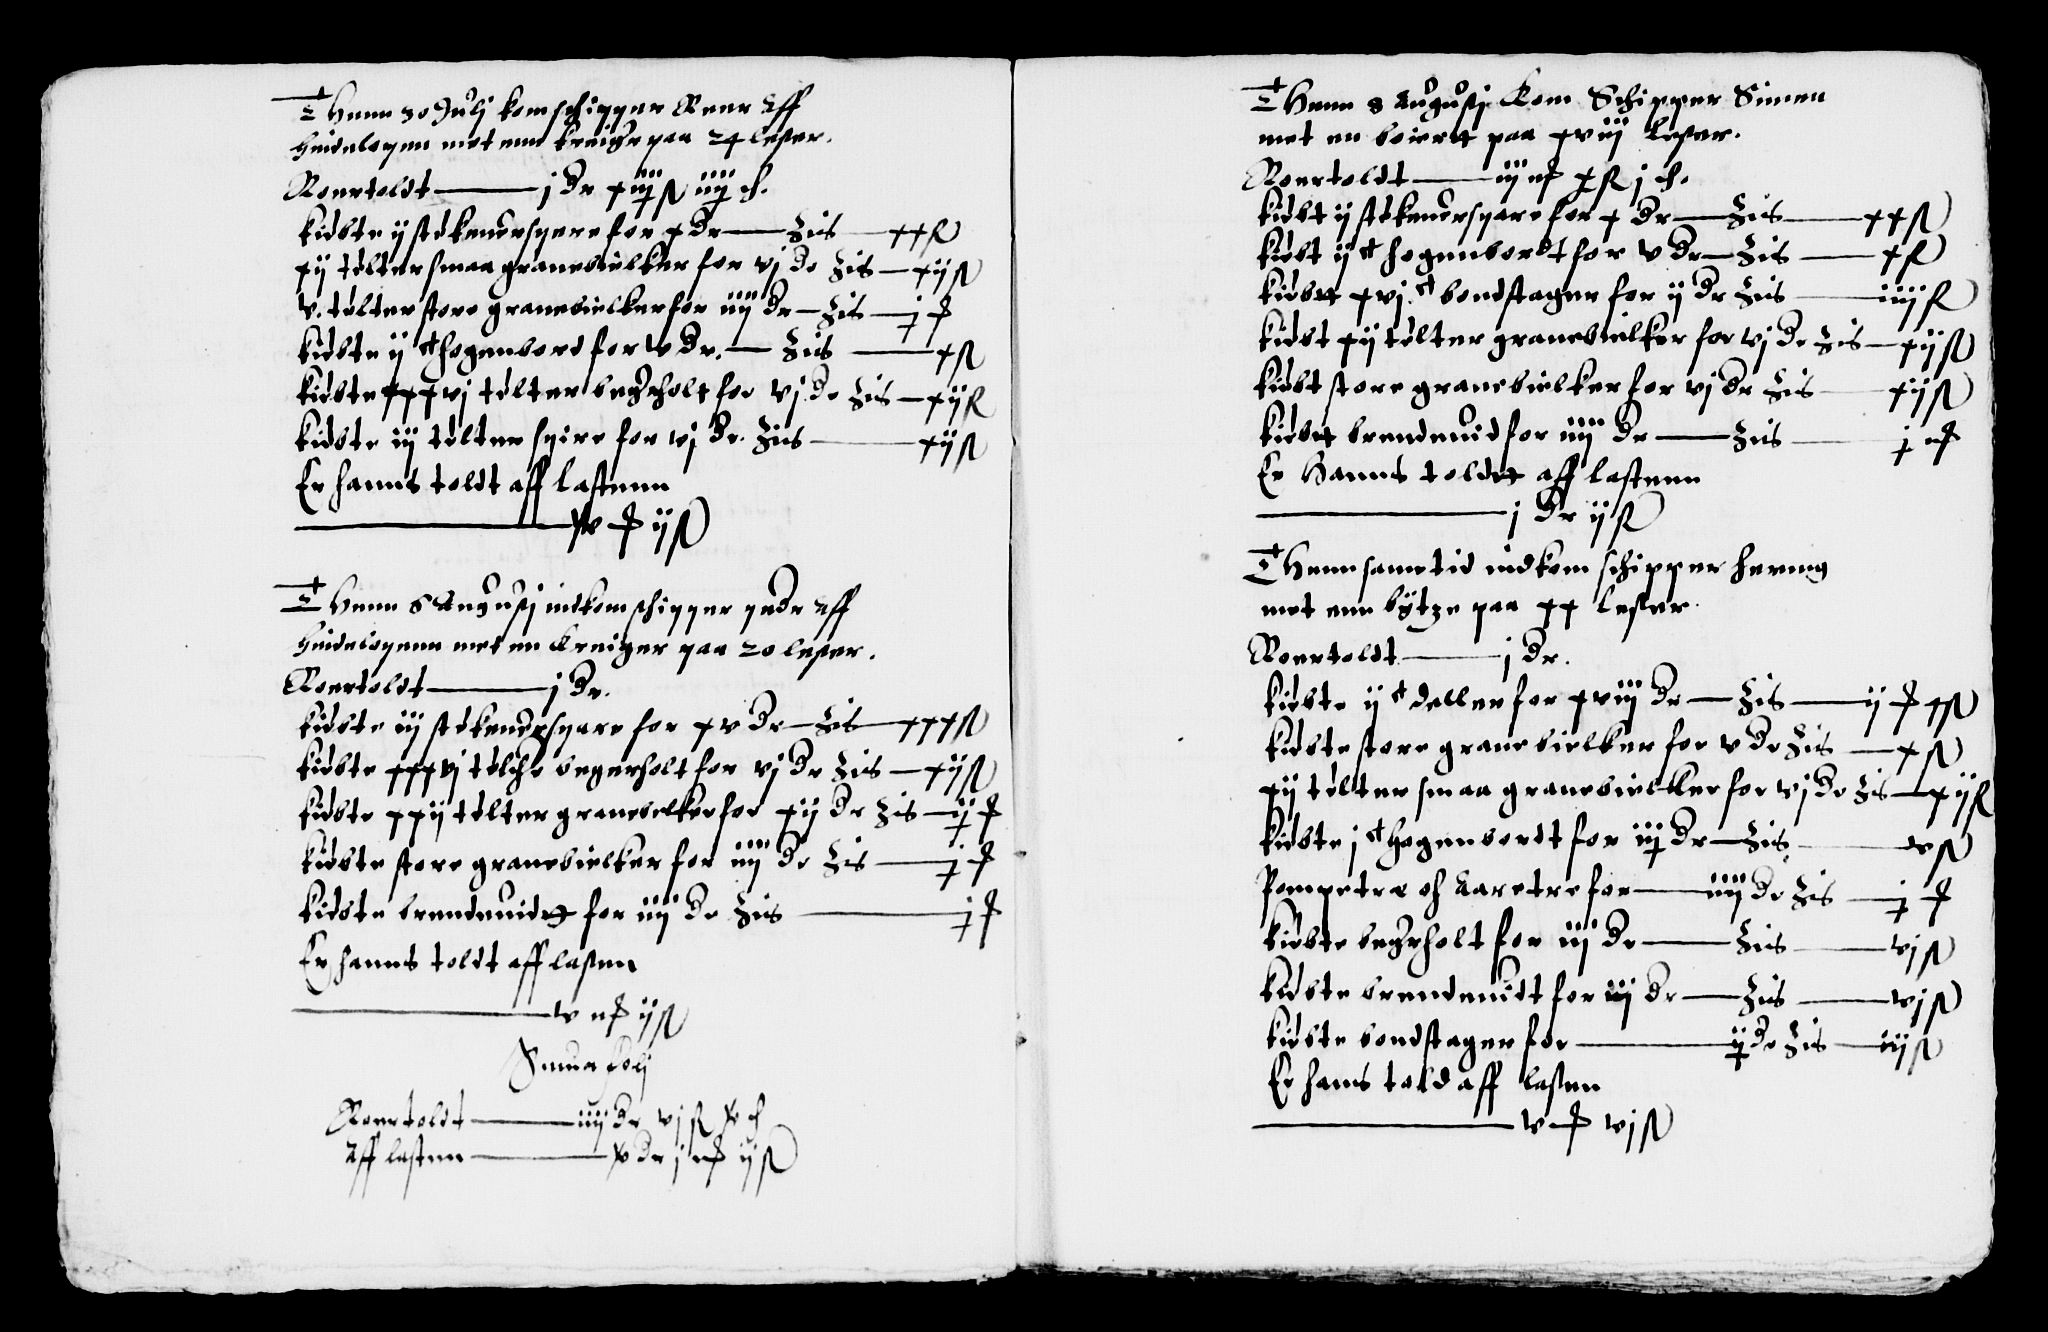 Thenn 30 Julj kom schipper Reer Aff
Heidelopen met enn kreiger paa 24 lester.
Roertoldt j Dr xiiij ß iiij ch.
kiøbte ij støkener sparre for x Dr Zis xx ß
xij tølter smaa granebielker for vj Dr Zis xij ß
v. tølter store granebielker for iiij Dr Zis j
kiøbte ij hogenbord for v Dr. Zis x ß
kiøbte xxxvj tølter begerholt for vj Dr Zis xij ß
kiøbte iij tølter spire for vj Dr. Zis xij ß
Er hanns toldt aff lastenn
ij ß
Thenn 6 Augustj indkom schipper peder Aff
Heidelopenn met en kreiger paa 20 lester.
Roertoldt j Dr.
kiøbte iij støkener sparre for xv Dr Zis xxx ß
kiøbte xxxvj tølther begerholt for vj Dr Zis xij ß
kiøbte xxij tølter granebelker for xij Dr Zis
kiøbte store granebielker for iiij Dr Zis j
kiøbte brendeuidt for iiij Dr Zis j
Er hanns toldt aff lasten
v mk ij ß
Suma folij
Roertoldt iiij Dr vj ß ch
Aff lasten Dr j mk ij ß
Thenn 8 Augustj kom Schipper Simen
met en boiert paa xviij lester.
Roertoldt iij mk x ß j ch.
kiøbt ij støkener sparre for x Dr Zis xx ß
kiøbt ij hogenbordt for v Dr Zis x ß
kiøbt xvj bondstager for ij Dr Zis iiij ß
kiøbt xij tølter granebielker for vj Dr Zis xij ß
kiøbt store granebielker for vj Dr Zis xij ß
kiøbt brendeuid for iiij Dr Zis j mk
Er Hanns toldt aff lastenn
j Dr ij ß
Thenn same tid indkom schipper herinng
met enn bøtze paa xx lester.
Roertoldt j Dr.
kiøbte ij deller for xviij Dr Zis ij ß
kiøbte store granebielker for v Dr Zis x ß
xij tølter smaa granebielker for vj Dr Zis xij ß
kiøbte j hogenbordt for iij Dr Zis v ß
Pompetræ och Aaretre for iiij Dr Zis j
kiøbte begerholt for iij Dr Zis vj ß
kiøbte brendeuidt for iij Dr Zis vj ß
kiøbte bondstager for ij Dr Zis iij ß
Er hans told aff lasten
v vj ß